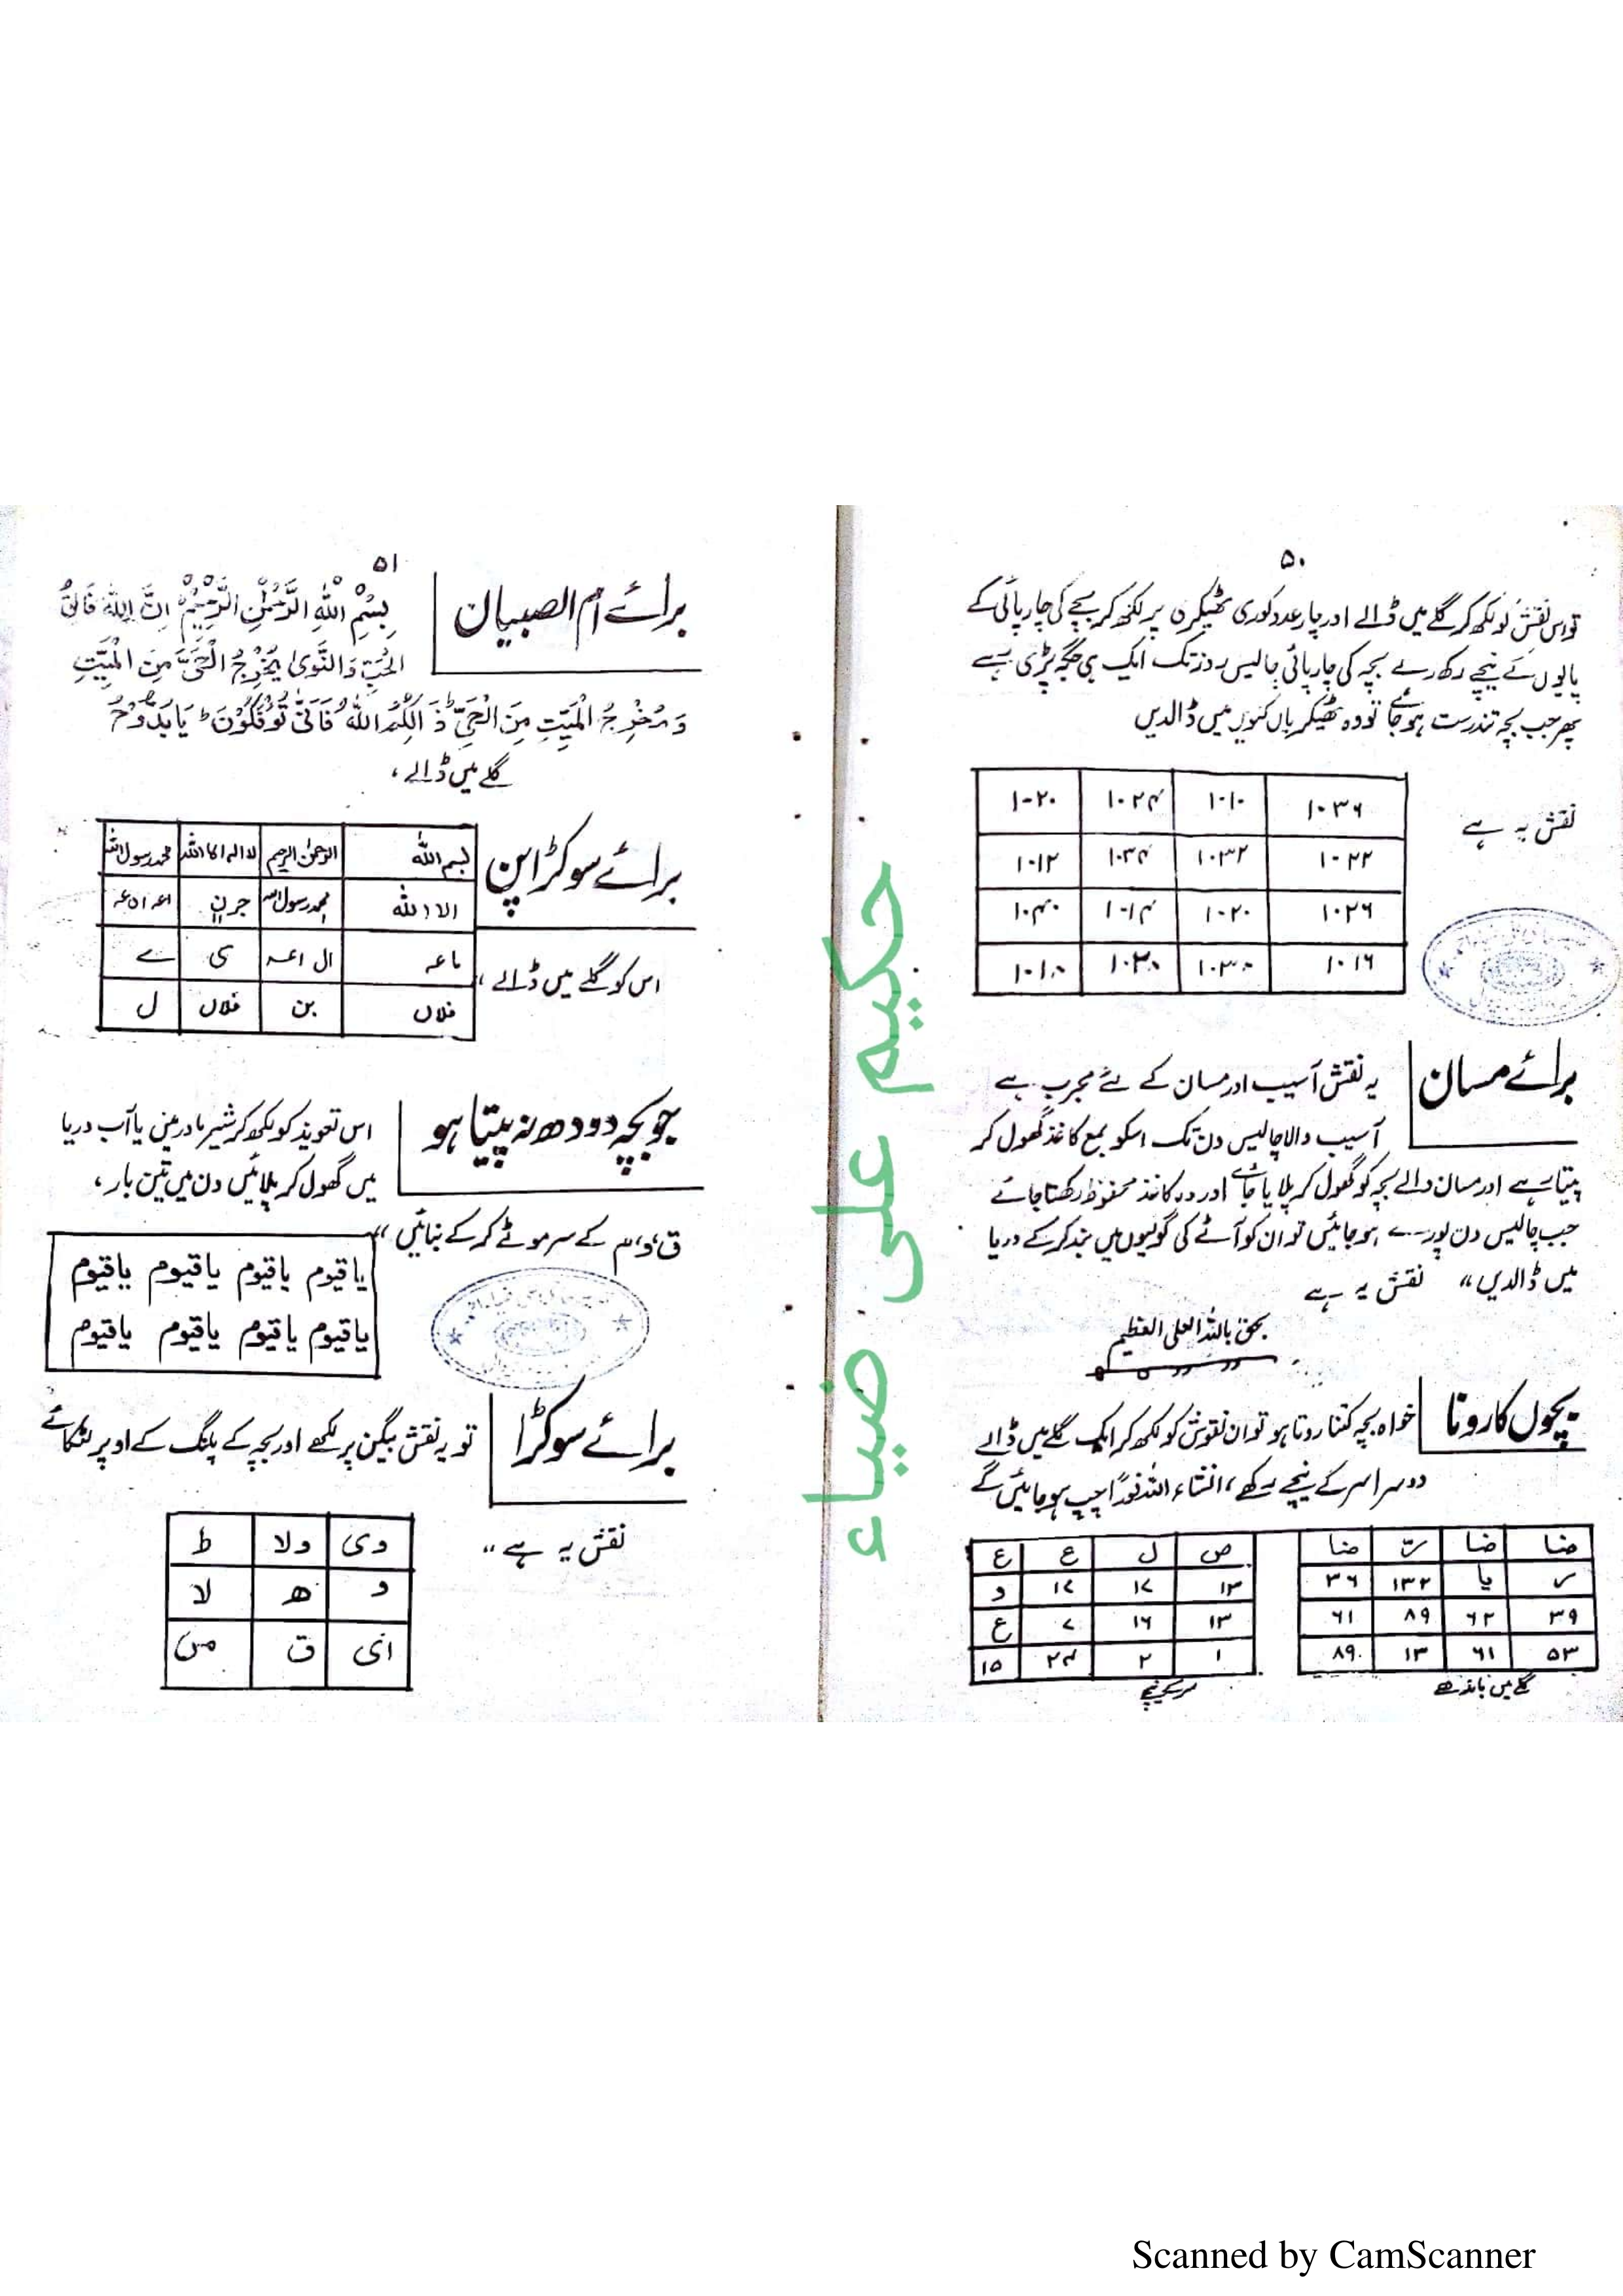 ۵۰
تو اس نقش کو لکھ کر گلے میں ڈالے اور چار عدد کوری ٹھیکری پر لکھ کر بچے کی چارپائی کے
پایوں کے نیچے رکھدے بچہ کی چارپائی چالیس روز تک ایک ہی جگہ پڑی رہے
پھر جب بچہ تندرست ہو جائے تو وہ ٹھیکریاں کنویں میں ڈالدیں
نقش یہ ہے
۱۰۳۶ ۱۰۱۰ ۱۰۲۴ ۱۰۲۰
۱۰۲۲ ۱۰۳۲ ۱۰۳۴ ۱۰۱۲
۱۰۲۶ ۱۰۲۰ ۱۰۱۴ ۱۰۴۰
۱۰۱۶ ۱۰۳۸ ۱۰۲۸ ۱۰۱۸
برائے مسان
یہ نقش آسیب اور مسان کے لئے مجرب ہے
آسیب والا چالیس دن تک اسکو بمع کاغذ گھول کر
پیتا رہے اور مسان والے بچہ کو گھول کر پلایا جائے اور وہ کاغذ محفوظ رکھتا جائے
جب چالیس دن پورے ہو جائیں تو ان کو آٹے کی گولیوں میں بند کر کے دریا
میں ڈالدیں،، نقش یہ ہے
بحق باللہ العلی العظیم
بچوں کا رونا
خواہ بچہ کتنا روتا ہو تو ان نقوش کو لکھ کر ایک گلے میں ڈالے
دوسرا سر کے نیچے رکھے، انشاء اللہ فوراً چپ ہو جائیں گے
ضا ضا ضا
یا ۱۳۲ ۳۶
۳۹ ۶۲ ۸۹ ۶۱
۵۳ ۶۱ ۱۳ ۸۹
گلے میں باندھے
ص ل ع ع
۱۳ ۱۷ ۱۷ د
۱۳ ۱۶ ۷ ع
۱ ۲ ۲۴ ۱۵
سر کے نیچے
۵۱
برائے ام الصبیان
بِسْمِ اللهِ الرَّحْمٰنِ الرَّحِيْمِ اِنَّ اللهَ فَالِقُ
الْحَبِّ وَالنَّوٰى يُخْرِجُ الْحَيَّ مِنَ الْمَيِّتِ
وَمُخْرِجُ الْمَيِّتِ مِنَ الْحَيِّ ذَالِكُمُ اللهُ فَاَنّٰى تُؤْفَكُوْنَ ط يَا بَدُّوْحُ
گلے میں ڈالے،
برائے سوکڑا پن
اس کو گلے میں ڈالے،،
بسم اللہ الرحمن الرحیم لا الہ الا اللہ محمد رسول اللہ
الا اللہ محمد رسول اللہ
ی ے
فلاں بن فلاں ل
جو بچہ دودھ نہ پیتا ہو
اس تعویذ کو لکھ کر شیر مادر میں یا آب دریا
میں گھول کر پلائیں دن میں تین بار،
ق، و، م کے سر موٹے کر کے بنائیں،،
یا قیوم یا قیوم یا قیوم یا قیوم
یا قیوم یا قیوم یا قیوم یا قیوم
برائے سوکڑا
تو یہ نقش بیگن پر لکھے اور بچہ کے پلنگ کے اوپر لٹکائے
نقش یہ ہے،،
دی ولا ط
د ھ لا
انی ق من
حکیم علی ضیاء
Scanned by CamScanner